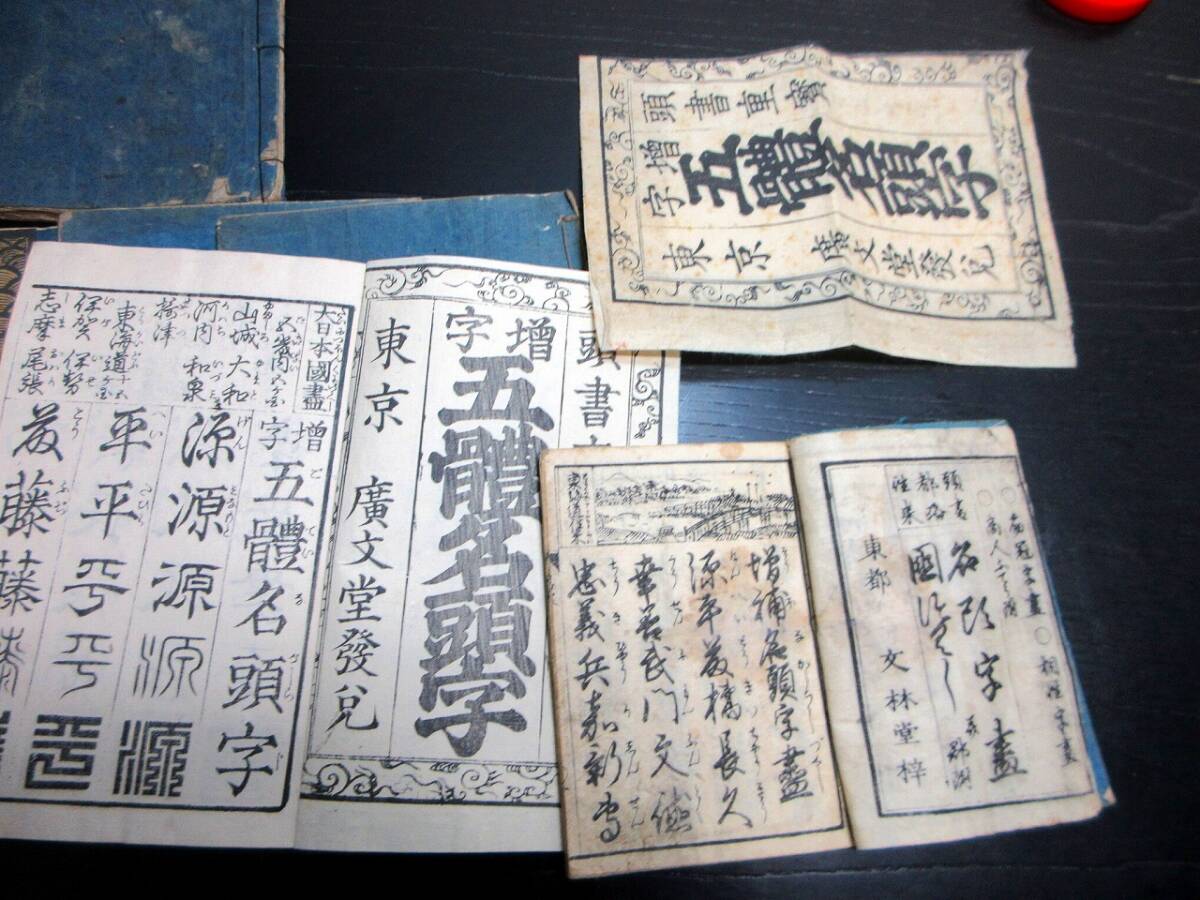 頭書重寶
增字
五體名頭字
東京 廣文堂發兌
頭書
增字
五體名頭字
東京 廣文堂發兌
大日本國盡
五畿内五ケ国
山城 大和
河内 和泉
摂津
東海道十五ケ国
伊賀 伊勢
志摩 尾張
增字 五體名頭字
源源源源源
平平平平平
藤藤藤
頭書
都路
往来
名頭字盡
國盡
東都 文林堂梓
增補名頭字盡
源平藤橘長久
幸善武門文德
忠義兵嘉新